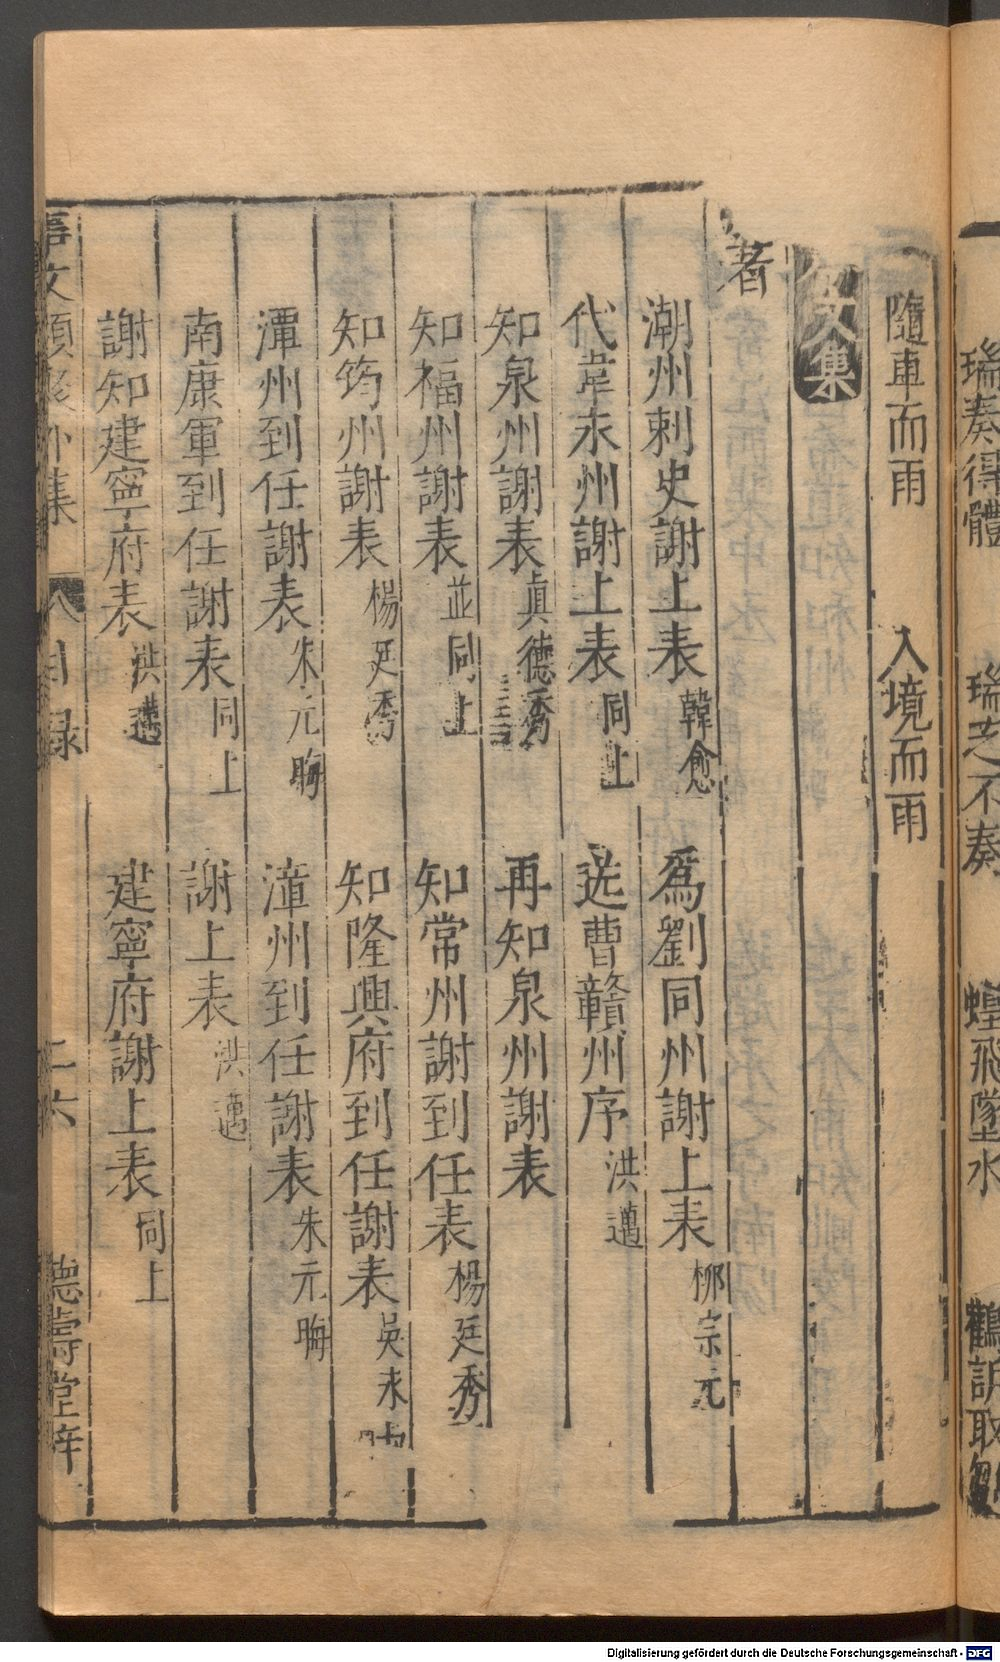 瑞奏得體 瑞芝不奏 蝗飛墜水 鸛訴取
隨車而雨 入境而雨
文集
著
潮州剌史謝上表 韓愈 爲劉同州謝上表 柳宗元
代韋永州謝上表 同上 送曹贛州序 洪邁
知泉州謝表 眞德秀 再知泉州謝表
知福州謝表 並同上 知常州謝到任表 楊廷秀
知筠州謝表 楊廷秀 知隆興府到任謝表 吳
潭州到任謝表 朱元晦 漳州到任謝表 朱元晦
南康軍到任謝表 同上 謝上表 洪邁
謝知建寧府表 洪邁 建寧府謝上表 同上
事文類聚外集 目録 二六 德壽堂梓
Digitalisierung gefördert durch die Deutsche Forschungsgemeinschaft - DFG